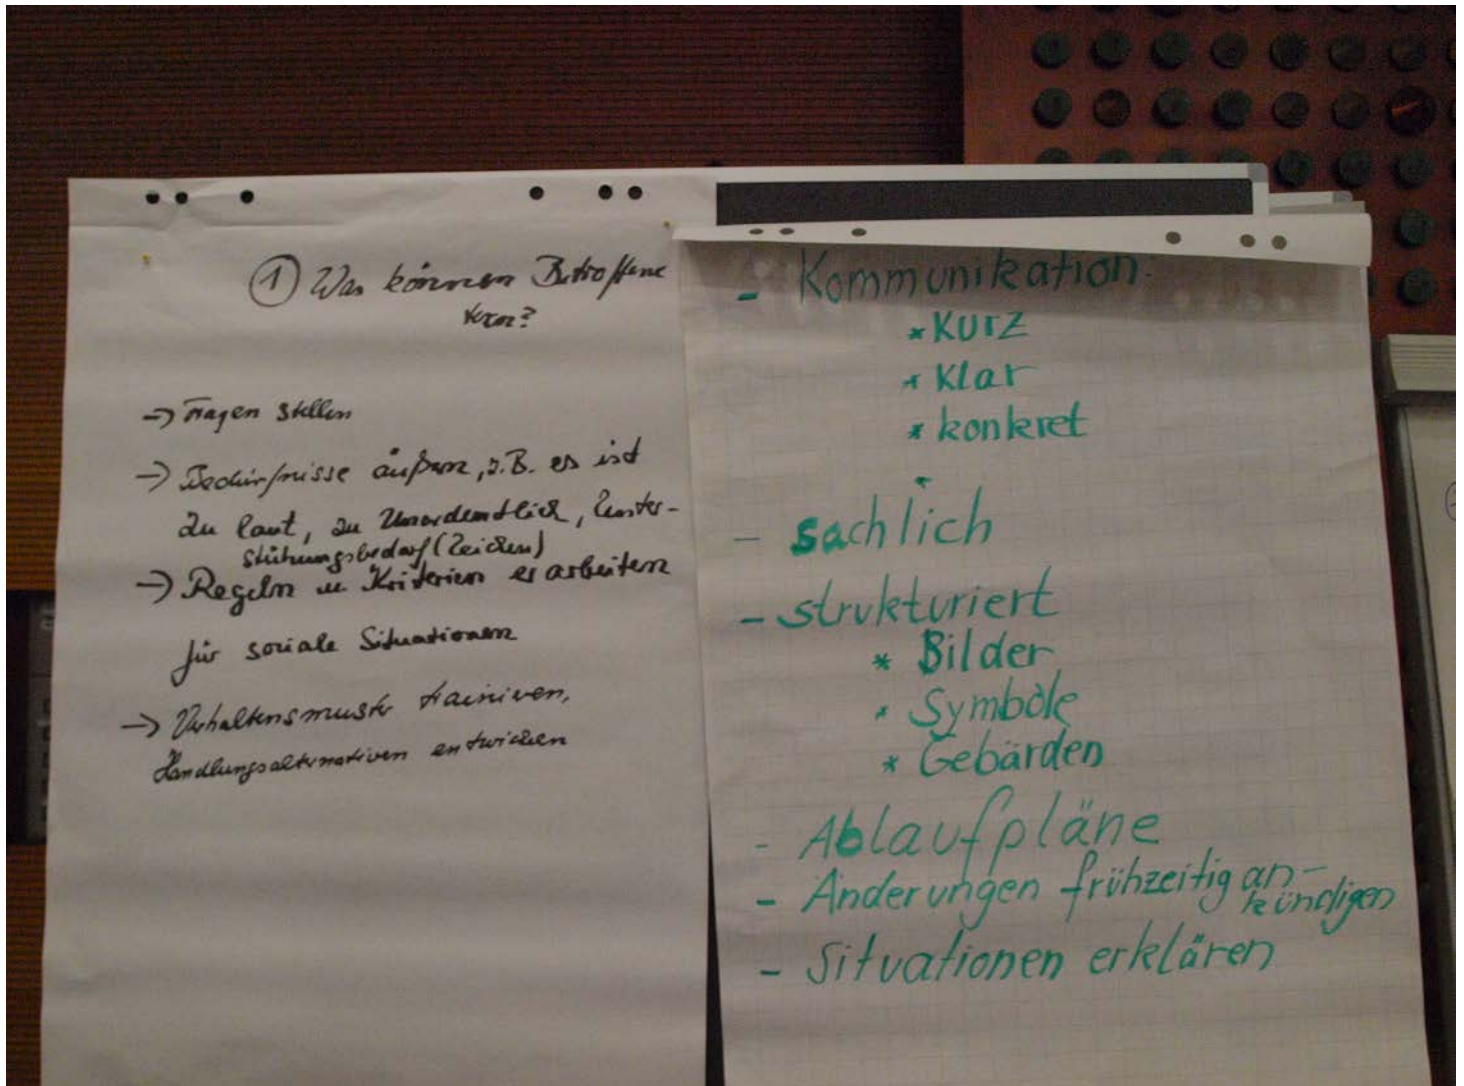 ① Was können Betroffene
tun?
→ Fragen stellen
→ Bedürfnisse äußern, z.B. es ist
zu laut, zu unordentlich, Unter-
stützungsbedarf (Zeichen)
→ Regeln u. Kriterien erarbeiten
für soziale Situationen
→ Verhaltensmuster trainieren,
Handlungsalternativen entwickeln
- Kommunikation:
* Kurz
* Klar
* konkret
- sachlich
- strukturiert
* Bilder
* Symbole
* Gebärden
- Ablaufpläne
- Änderungen frühzeitig an-
kündigen
- Situationen erklären